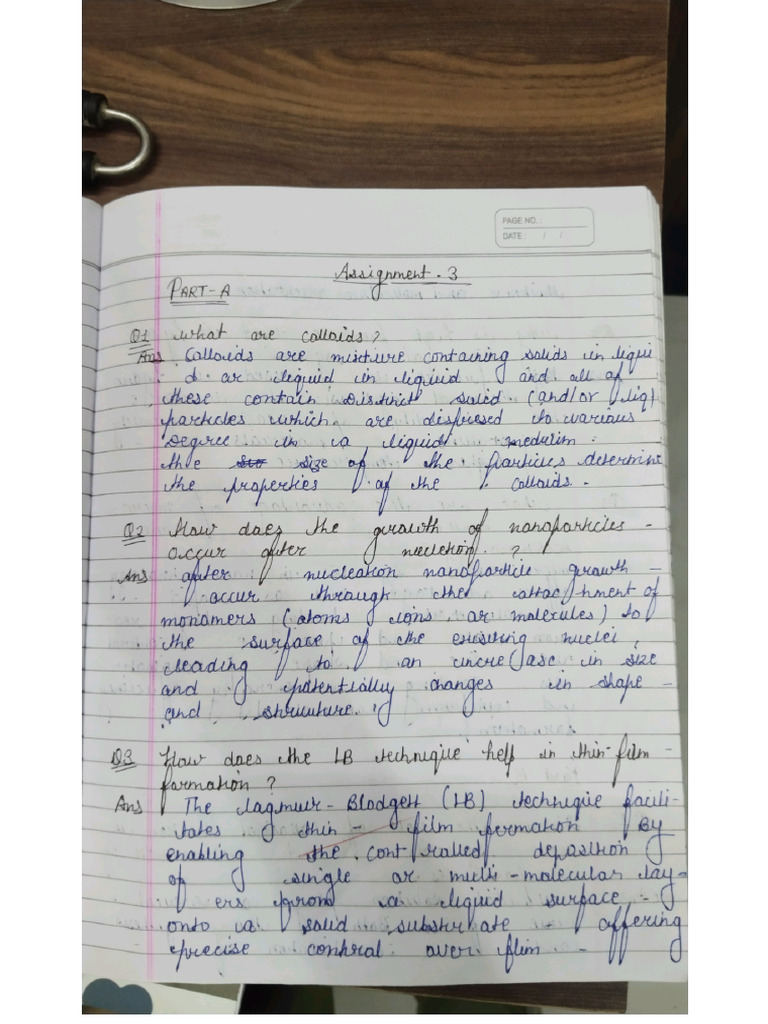 PAGE NO. :
DATE : / /
Assignment - 3
PART-A
Q1 what are colloids?
Ans Colloids are mixture containing solids in liqui
d or liquid in liquid and all of
these contain Distnict solid (and/or liq)
particles which are dispresed to various
Degree in a liquid medulim.
the size of the particles determint
the properties of the colloids.
Q2 How does the growth of nanoparticles -
occur after nucletion ?
Ans after nucleation nanoparticle growth -
occur through the attachment of
monomers (atoms ions or molecules) to
the surface of the exisiting nuclei,
leading to an increase in size
and potentially changes in shape -
and structure.
Q3 How does the LB technique help in thin-film -
formation ?
Ans The lagmur-Blodgett (LB) technique facili-
tates thin - film formation By
enabling the controlled deposition
of single or multi-molecular lay-
ers from a liquid surface, -
onto a solid substrate - offering
precise control over flim -